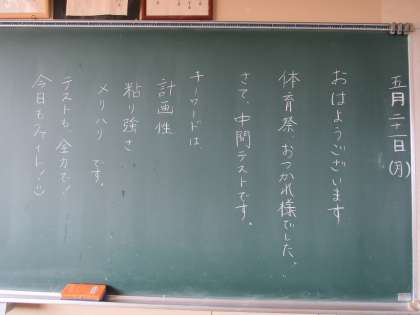 五月二十一日(月)
おはようございます
体育祭、おつかれ様でした。
さて、中間テストです。
キーワードは、
計画性
粘り強さ
メリハリ です。
テストも 全力で!
今日もファイト!